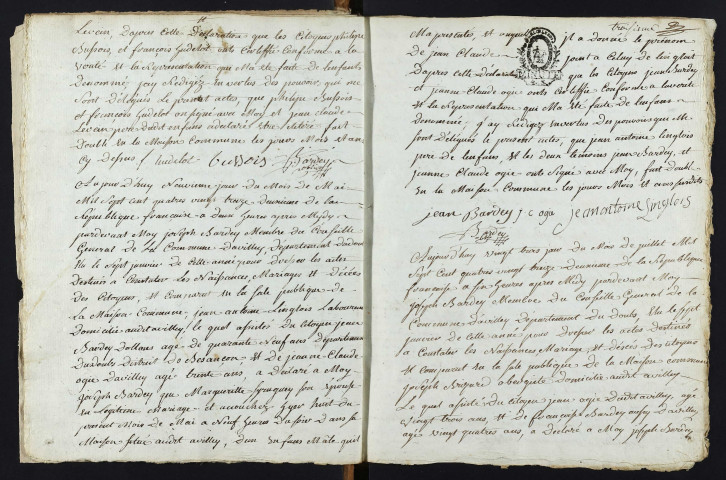 Levain, Dapres Cette Declaration que les Citoyens philipe
Bussois, et françois hudelot onts Certiffié Conforme a la
verité et la Representation qui Ma Eté faite de lenfants
Denommé jay Redigez en vertus des pouvoirs qui me
sont Délégués Le present actes, que philipe Bussois
et francois hudelot on signé avec Moy et jean claude
Levan pere dudit enfans a declaré Etre iliteré fait
Double En la Maison Commune les jours Mois et an
Cy dessus f hudelot Bussois J Bardey
Aujourd'huy Neuvieme jour du Mois de Mai
Mil sept cent quatre vingt treize Deuxieme de la
Republique francaise a Deux heures apres Mydy
pardevant Moy joseph Bardey Membre du Conseille
General de la Commune Davilley Departement Dudoubs
Elu le sept janvier de Cette année pour Dresser les actes
Destinés a Constater les Naissances, Mariages et Décées
des Citoyens, Et Comparu En la sale publique de
la Maison Commune, jean antoine Linglois Laboureur
Domicilié audit avilley, le quel assistés du Citoyen jean
Bardey Dollans agé de quarante Neuf ans Departement
Dudoubs District de Besançon Et de jeanne Claude
ogie Davilley agé trente ans a Déclaré a Moy
joseph Bardey que Margueritte son Epouse
En Legitime Mariage et accouchez hyer huit du
present Mois de Mai a Neuf heures Dusoir Dans sa
Maison situé audit avilley, Dun Enfans Male quil
troisieme
Ma presentés, et auquel il a donné le prenom
de jean Claude
Dapres Cette Declaration que les Citoyens jean Bardey
et jeanne Claude ogie onts Certiffié Conforme a la verité
et la Representation qui Ma Eté faite de lenfans
denommé jay Redigez en vertus des pouvoirs qui Me
sont Déligués Le present actes, que jean antoine linglois
pere de lenfans, et les deux temoins jean Bardey, et
jeanne Claude ogie onts signé avec Moy, fait Double
En la Maison Commune les jours Mois et ans susdits
jean Bardey j c ogie jean antoine Linglois
J Bardey
Aujourd'huy vingt trois jour du Mois de juillet Mil
sept cent quatre vingt treize Deuxieme de la Republique
francaise a six heures apres Midy pardevant Moy
joseph Bardey Membre du Conseille General de la
Commune Davilley Departement du Doubs, Elu le sept
janvier de Cette année pour Dresser les actes destinés
a Constater les Naissances Mariage et décées des Citoyens
Et Comparu En la sale publique de la Maison Commune
joseph Domicilié audit avilley
Le quel assisté du Citoyen jean ogie Dudit avilley, agé
vingt trois ans, et De francoise Bardey aussy Davilley,
agée vingt quatres ans, a declaré a Moy joseph Bardey